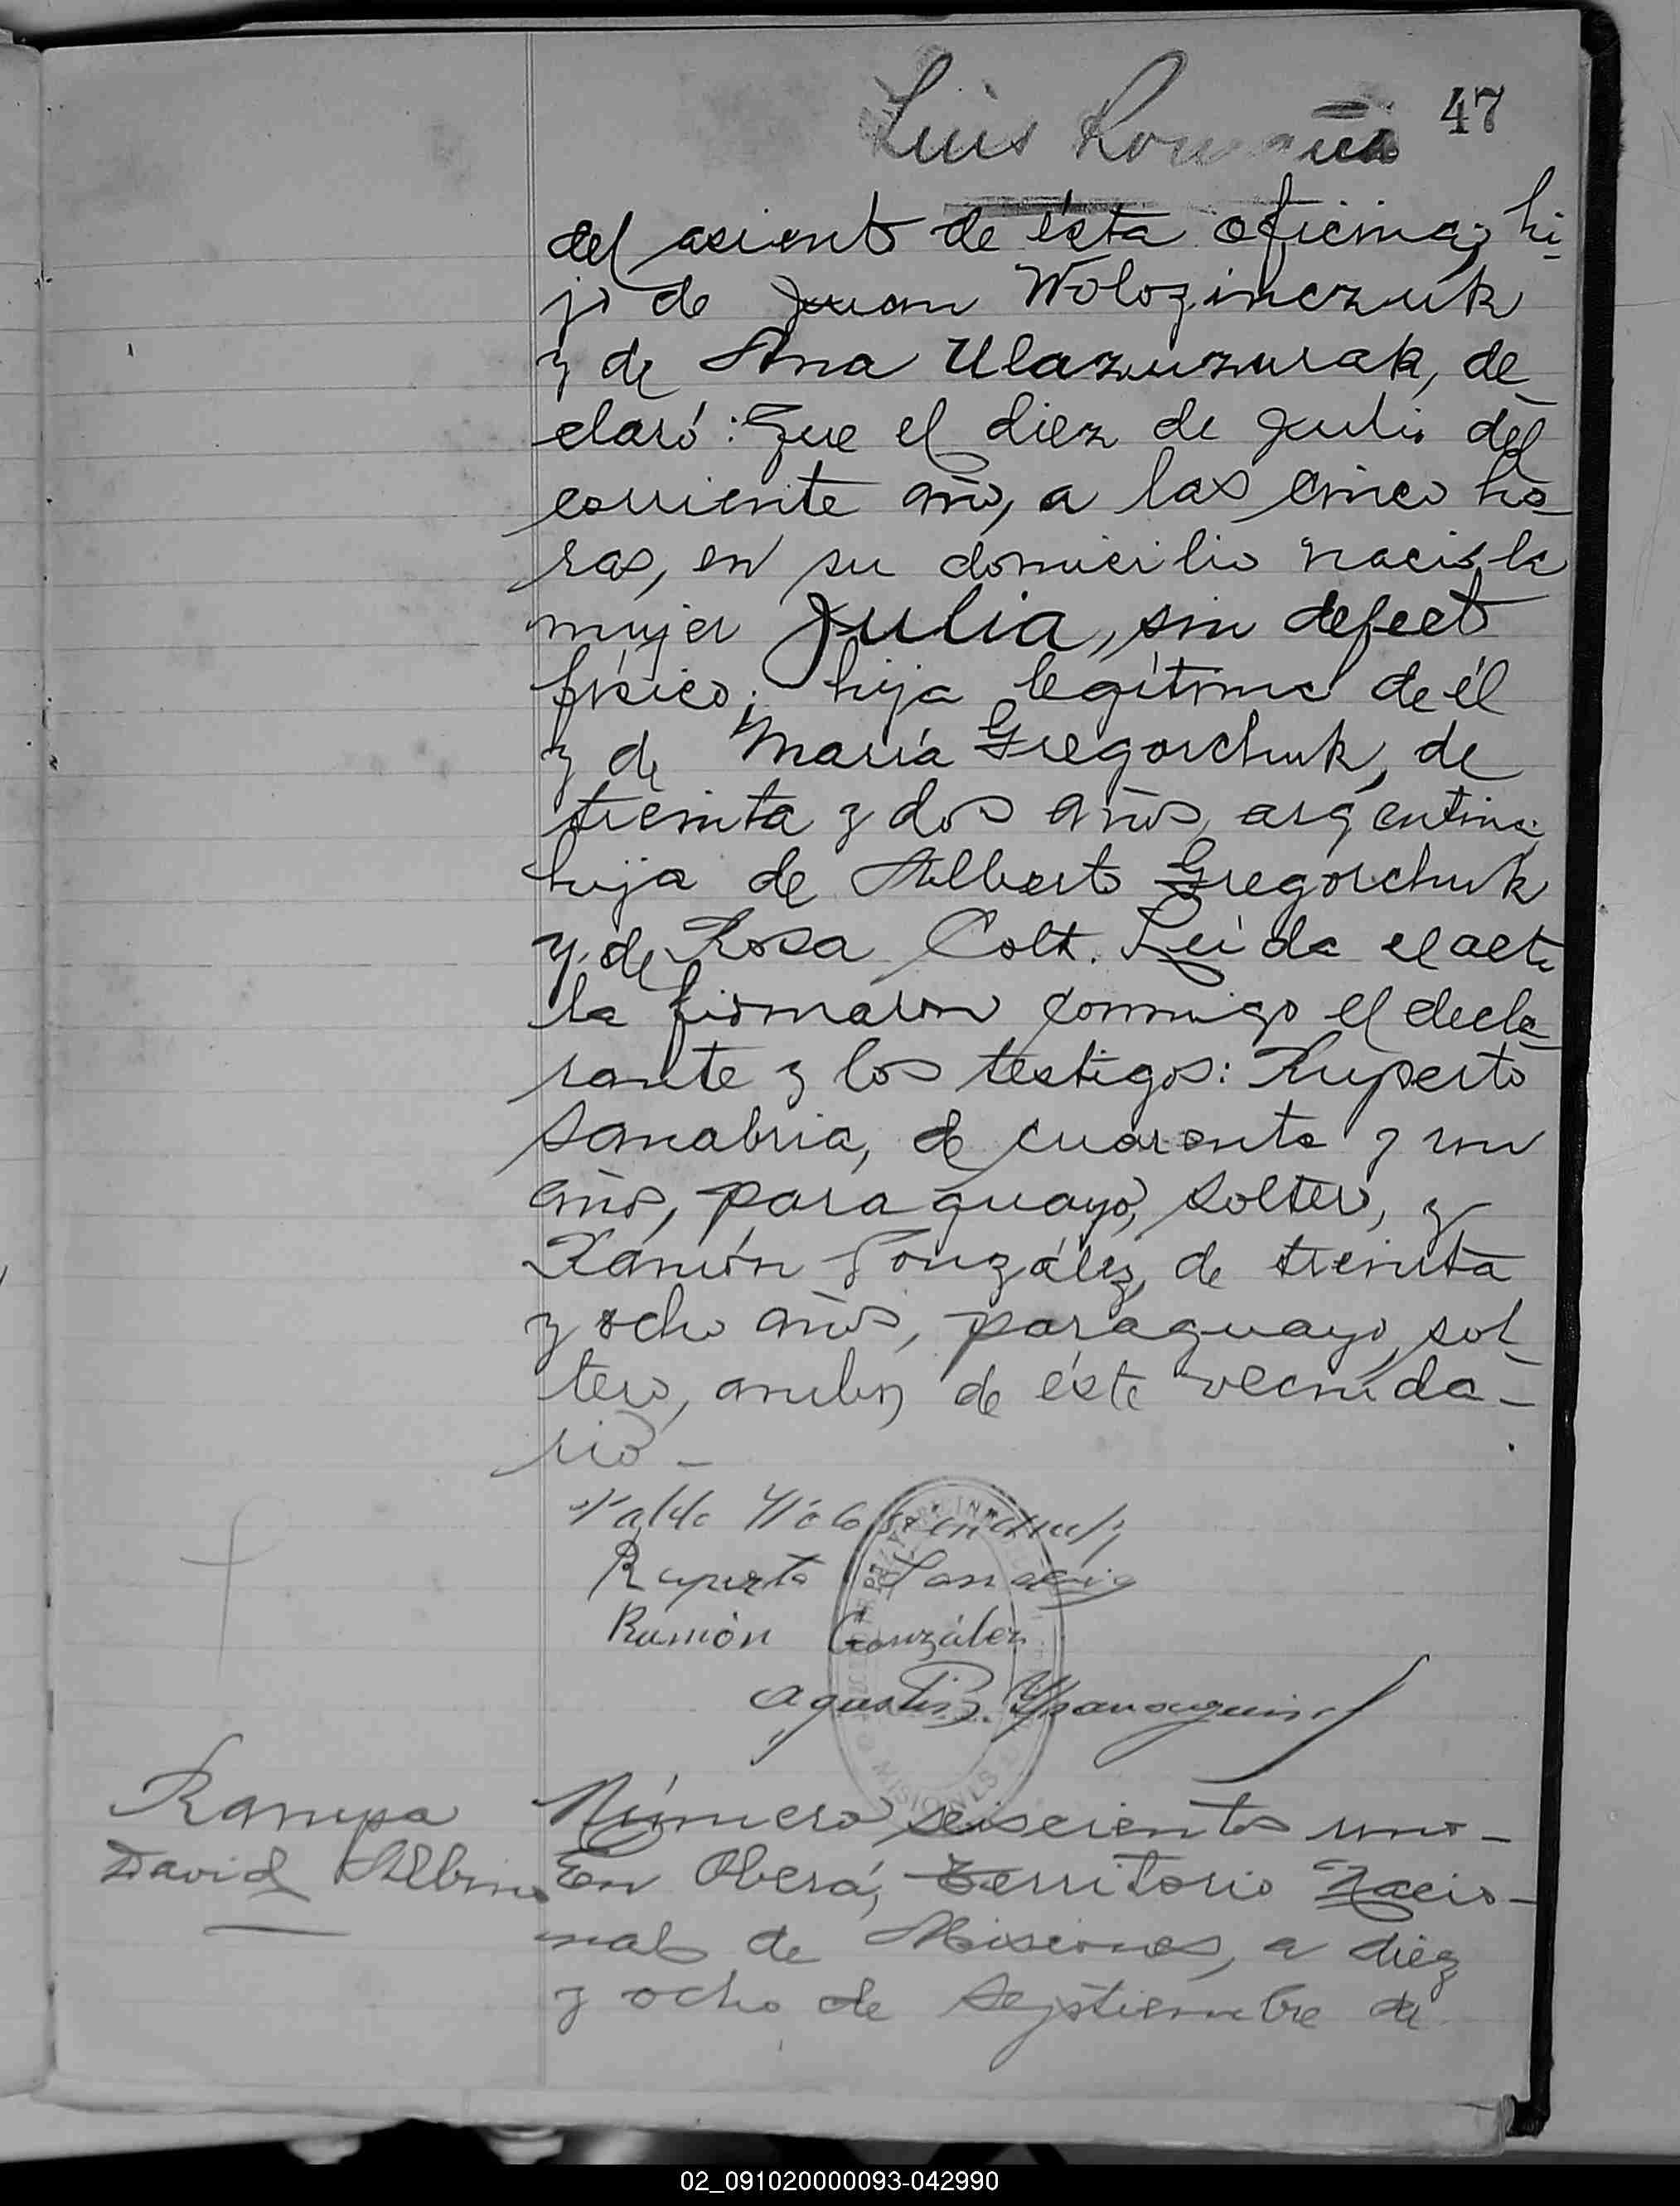 47
Luis
del asiento de ésta oficina; hi-
jo de Juan Wolozinczuk
y de Ana Ulazuzurak, de-
claró: Que el diez de Julio del
corriente año, a las cinco ho-
ras, en su domicilio nació la
mujer Julia, sin defecto
físico; hija legítima de él
y de María Gregorchuk, de
treinta y dos años, argentina;
hija de Alberto Gregorchuk
y de Rosa Colt. Leída el acta
la firmaron conmigo el decla-
rante y los testigos: Ruperto
Sanabria, de cuarenta y un
años, paraguayo, soltero, y
Ramón González, de treinta
y ocho años, paraguayo, sol-
tero, ambos de éste vecinda-
rio-
Ruperto Sanabria
Ramón González
Agustín B.
MISIONES
Rampa
David Albino
Número seiscientos uno-
En Oberá, Territorio Nacio-
nal de Misiones, a diez
y ocho de Septiembre de
02_091020000093-042990